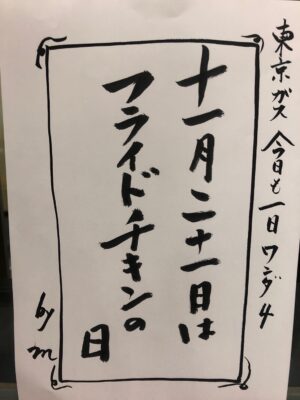 東京ガス 今日も一日ワンダ4
十一月二十一日は
フライドチキンの
日
by m